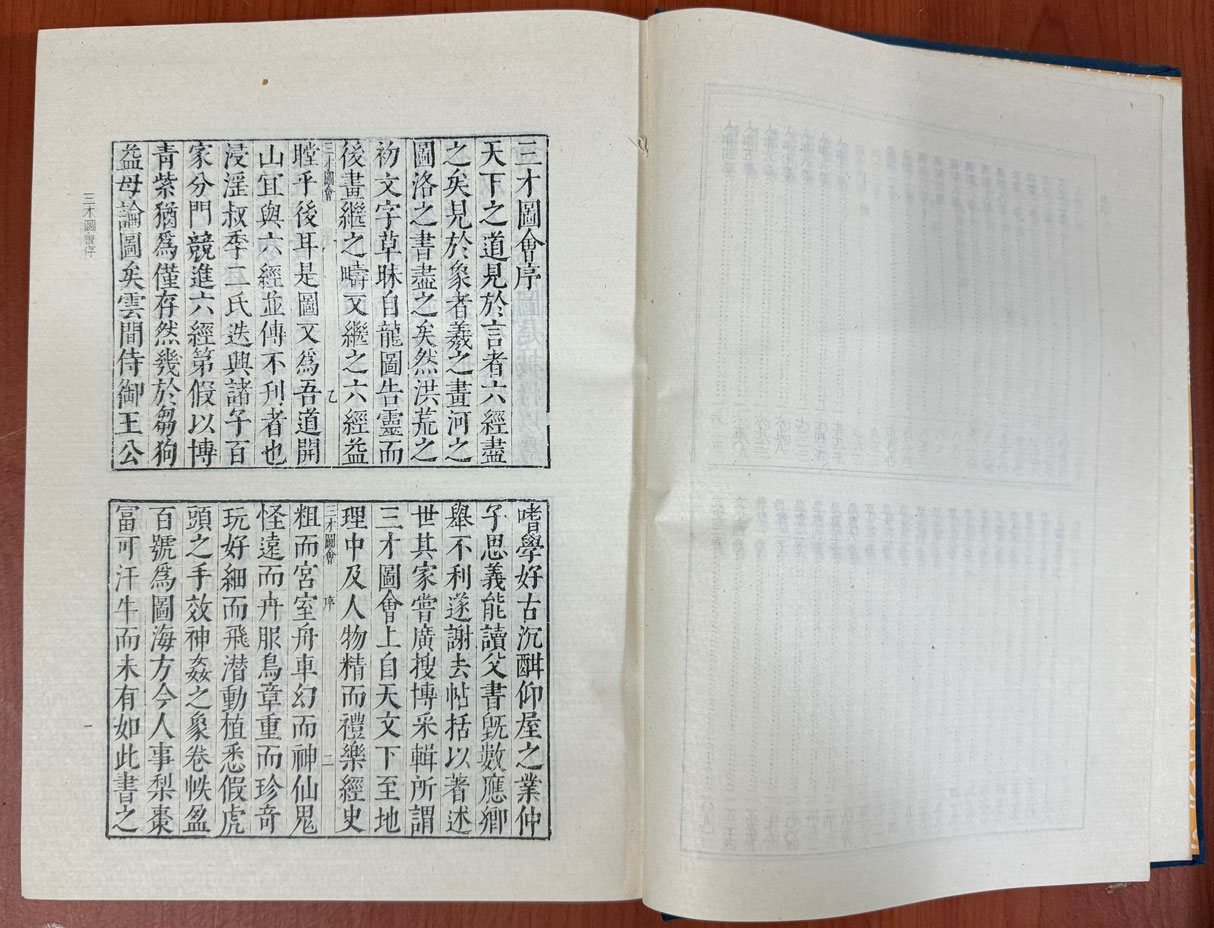 三才圖會序
天下之道見於言者六經盡
之矣見於象者羲之畫河之
圖洛之書盡之矣然洪荒之
初文字草昧自龍圖告靈而
後畫繼之疇又繼之六經益
三才圖會
乙
瞠乎後耳是圖又爲吾道開
山宜與六經並傳不刋者也
浸淫叔季二氏迭興諸子百
家分門競進六經第假以博
青紫猶爲僅存然幾於芻狗
益毋論圖矣雲間侍御王公
嗜學好古沉酣仰屋之業仲
子思義能讀父書旣數應鄉
舉不利遂謝去帖括以著述
世其家嘗廣搜博采輯所謂
三才圖會上自天文下至地
理中及人物精而禮樂經史
三才圖會 序
二
粗而宮室舟車幻而神仙鬼
怪遠而卉服鳥章重而珍奇
玩好細而飛潜動植悉假虎
頭之手效神姦之象卷帙盈
百號爲圖海方今人事梨棗
富可汗牛而未有如此書之
三才圖會序
一